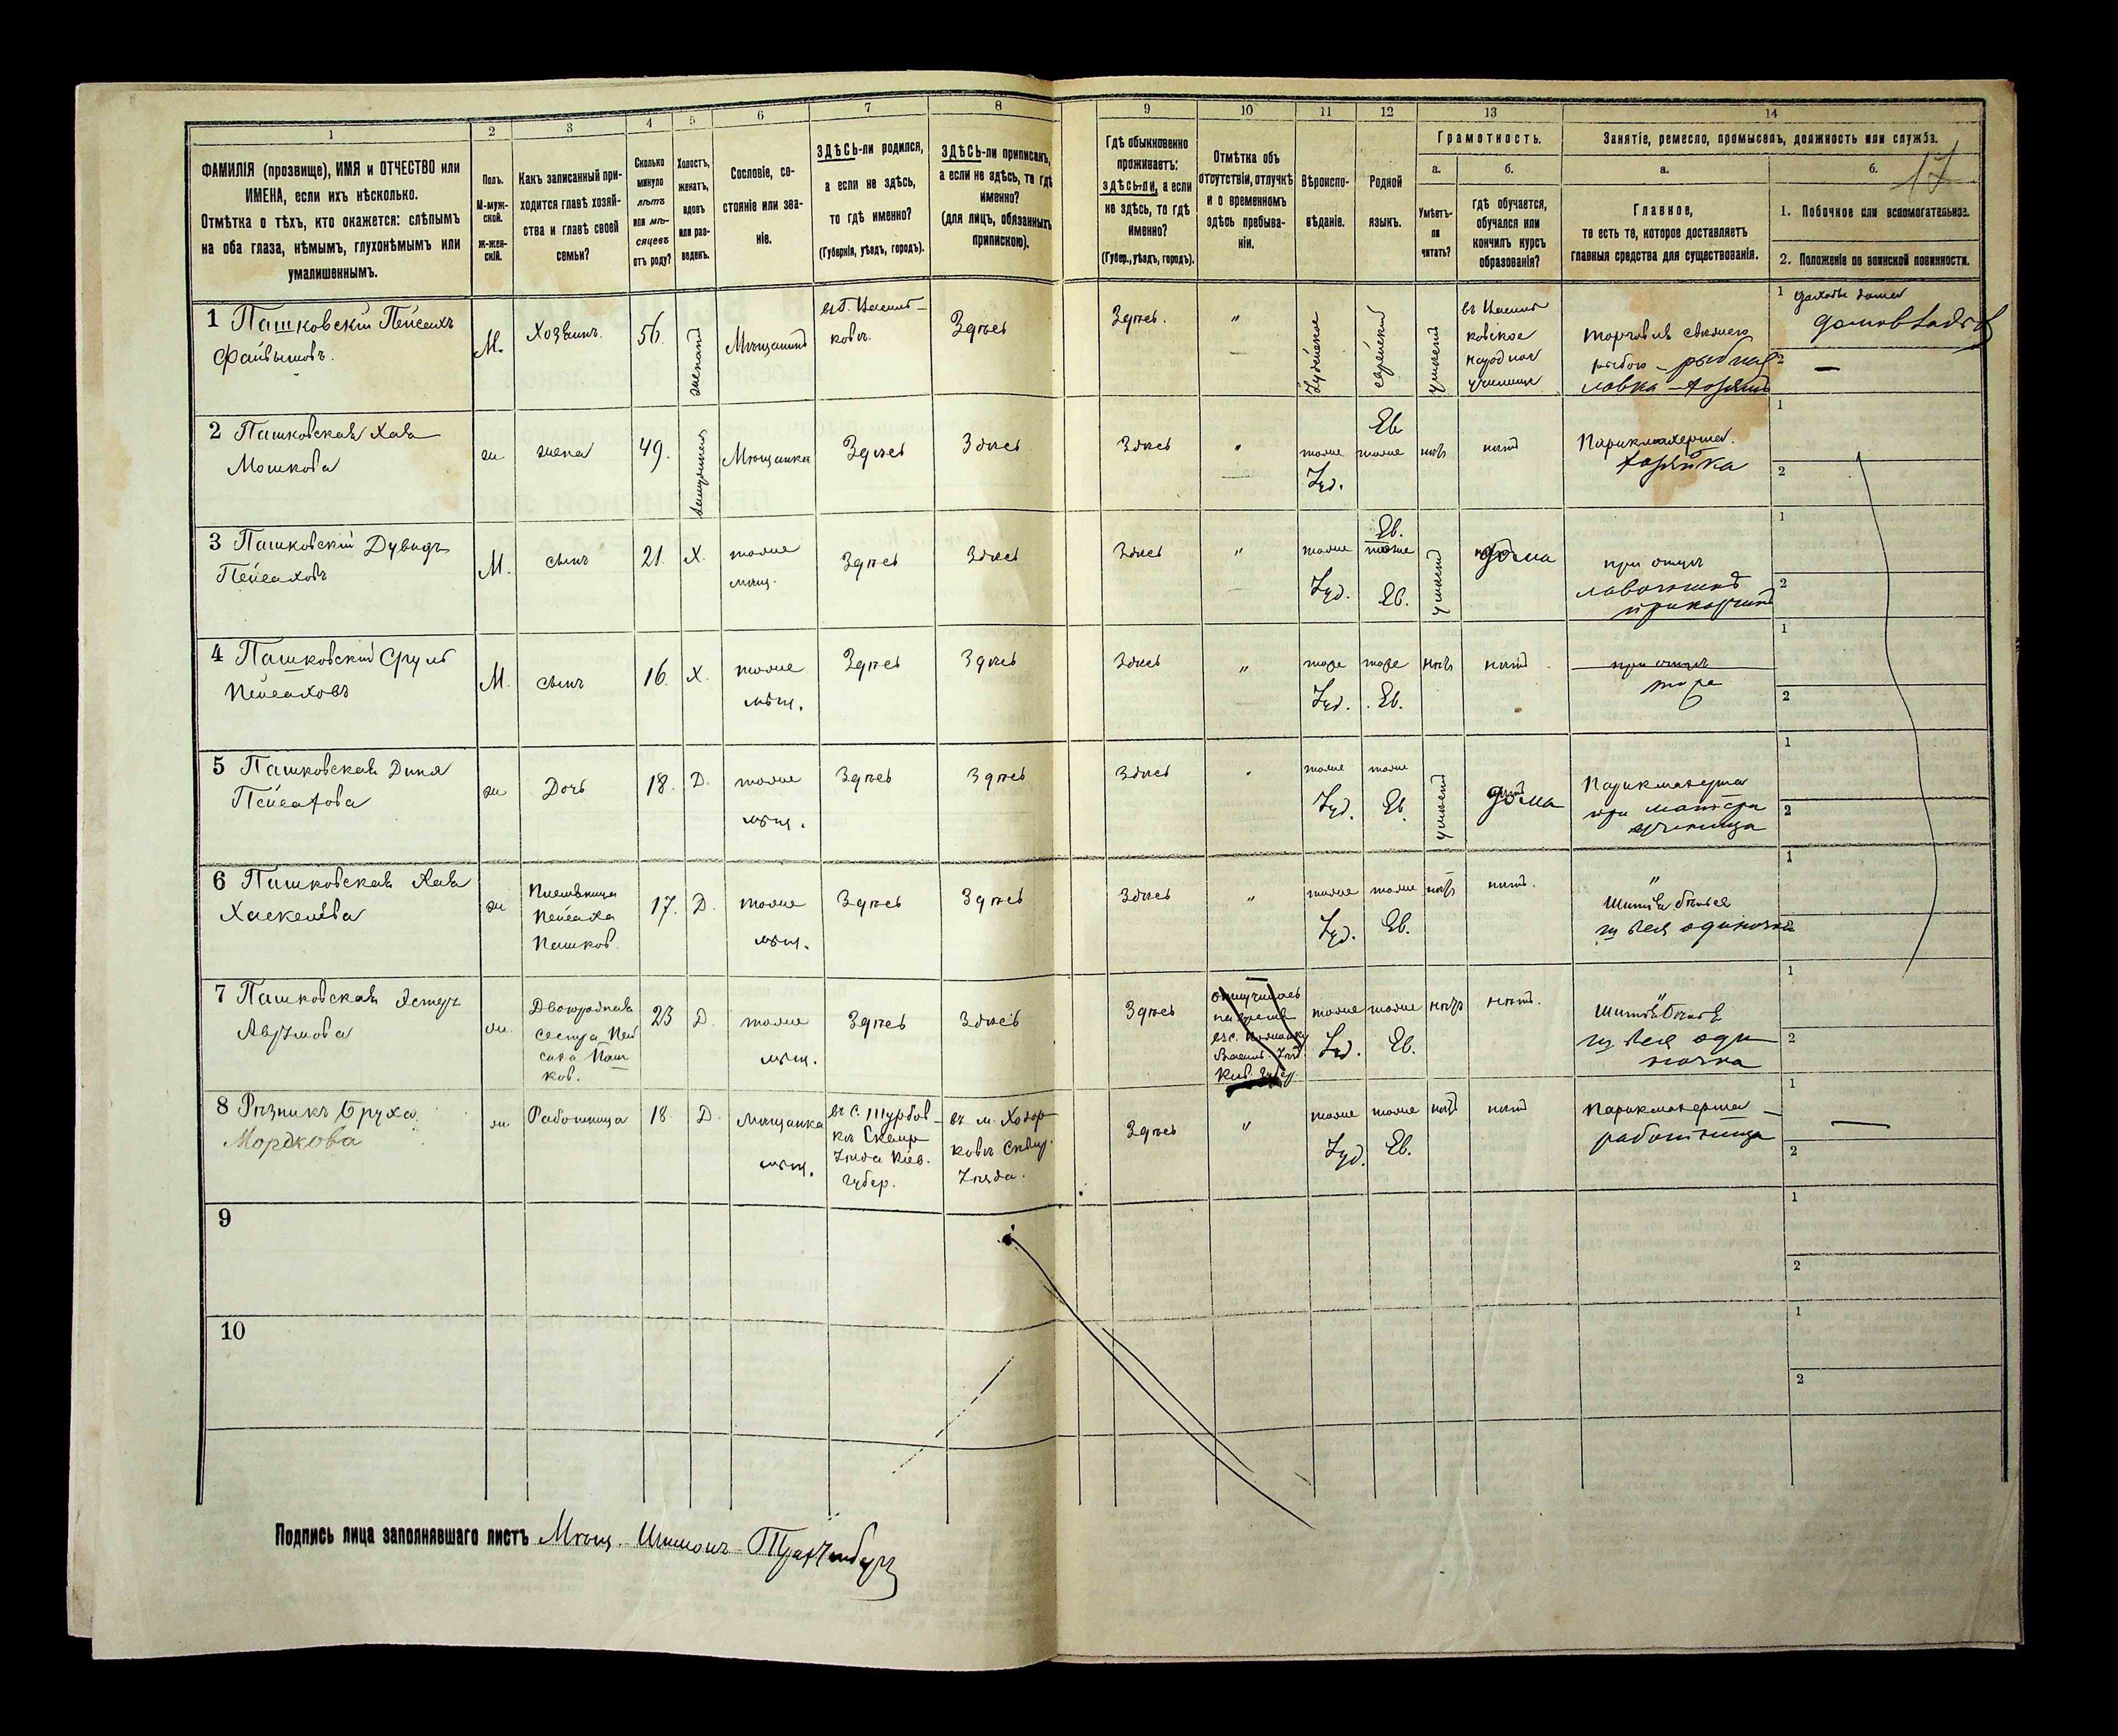 1 2 3 4 5 6 7 8 9 10 11 12 13 14
ФАМИЛІЯ (прозвище), ИМЯ и ОТЧЕСТВО или
ИМЕНА, если ихъ нѣсколько.
Отмѣтка о тѣхъ, кто окажется: слѣпымъ
на оба глаза, нѣмымъ, глухонѣмымъ или
умалишеннымъ.
Полъ.
М-муж-
ской.
Ж-жен-
скій.
Какъ записанный при-
ходится главѣ хозяй-
ства и главѣ своей
семьи?
Сколько
минуло
лѣтъ
или мѣ-
сяцевъ
отъ роду?
Холостъ,
женатъ,
вдовъ
или раз-
веденъ.
Сословіе, со-
стояніе или зва-
ніе.
ЗДѢСЬ-ли родился,
а если не здѣсь,
то гдѣ именно?
(Губернія, уѣздъ, городъ).
ЗДѢСЬ-ли приписанъ,
а если не здѣсь, то гдѣ
именно?
(для лицъ, обязанныхъ
припискою).
Гдѣ обыкновенно
проживаетъ:
здѣсь-ли, а если
не здѣсь, то гдѣ
именно?
(Губер., уѣздъ, городъ).
Отмѣтка объ
отсутствіи, отлучкѣ
и о временномъ
здѣсь пребыва-
ніи.
Вѣроиспо-
вѣданіе.
Родной
языкъ.
Грамотность.
а.
Умѣетъ-
ли
читать?
б.
гдѣ обучается,
обучался или
кончилъ курсъ
образованія?
Занятіе, ремесло, промыселъ, должность или служба.
а.
Главное,
то есть то, которое доставляетъ
главныя средства для существованія.
б.
17
1. Побочное или вспомогательное.
2. Положеніе по воинской повинности.
1 Пашковскій Пейсахъ
Файвышовъ.
М.
Хозяинъ.
56.
женатъ
Мѣщанинъ
въ г. Василь-
ковѣ.
Здѣсь
Здѣсь.
"
Іудейское
еврейскій
умѣетъ
въ Василь
ковское
народное
училище
торговля свѣжею
рыбою - рыбная
лавка - хозяинъ
1
2 —
2 Пашковская Хая
Мошкова
ж
жена
49.
замужняя
Мѣщанка
Здѣсь
Здѣсь
Здѣсь
"
тоже
Іуд.
Ев.
тоже
нѣтъ
нѣтъ
Парикмахерша.
хозяйка
1
2
3 Пашковскій Дувидъ
Пейсаховъ
М.
сынъ
21.
Х.
тоже
мѣщ.
Здѣсь
Здѣсь
Здѣсь
"
тоже
Іуд.
Ев.
тоже
Ев.
умѣетъ
дома
при отцѣ
лавочникъ
прикащикъ
1
2
4 Пашковскій Сруль
Пейсаховъ
М.
сынъ
16.
Х.
тоже
мѣщ.
Здѣсь
Здѣсь
Здѣсь
"
тоже
Іуд.
тоже
Ев.
нѣтъ
нѣтъ
при отцѣ
тоже
1
2
5 Пашковская Дина
Пейсахова
ж
Дочь
18.
Д.
тоже
мѣщ.
Здѣсь
Здѣсь
Здѣсь
"
тоже
Іуд.
тоже
Ев.
умѣетъ
дома
Парикмахерша
при матери
ученица
1
2
6 Пашковская Хая
Хаскелева
ж
Племяница
Пейсаха
Пашков.
17.
Д.
тоже
мѣщ.
Здѣсь
Здѣсь
Здѣсь
"
тоже
Іуд.
тоже
Ев.
нѣтъ
нѣтъ.
"
Шитьё бѣлья
одиночка
1
2
7 Пашковская Эстер
Аврумова
ж.
Двоюродная
сестра Пей
саха Паш
ков.
23
Д.
тоже
мѣщ.
Здѣсь
Здѣсь
Здѣсь
тоже
Іуд.
тоже
Ев.
нѣтъ
нѣтъ.
Шитьё бѣлья
оди
ночка
1
2
8 Рѣзникъ Бруха
Мордкова
ж
Работница
18.
Д.
Мѣщанка
мѣщ.
Уѣзда Кіев.
губер.
въ м. Ходор
ковѣ Сквир.
Уѣзда.
Здѣсь
"
тоже
Іуд.
тоже
Ев.
нѣтъ
нѣтъ
Парикмахерша —
работница
1 —
2
9
1
2
10
1
2
Подпись лица заполнявшаго листъ Мѣщ.